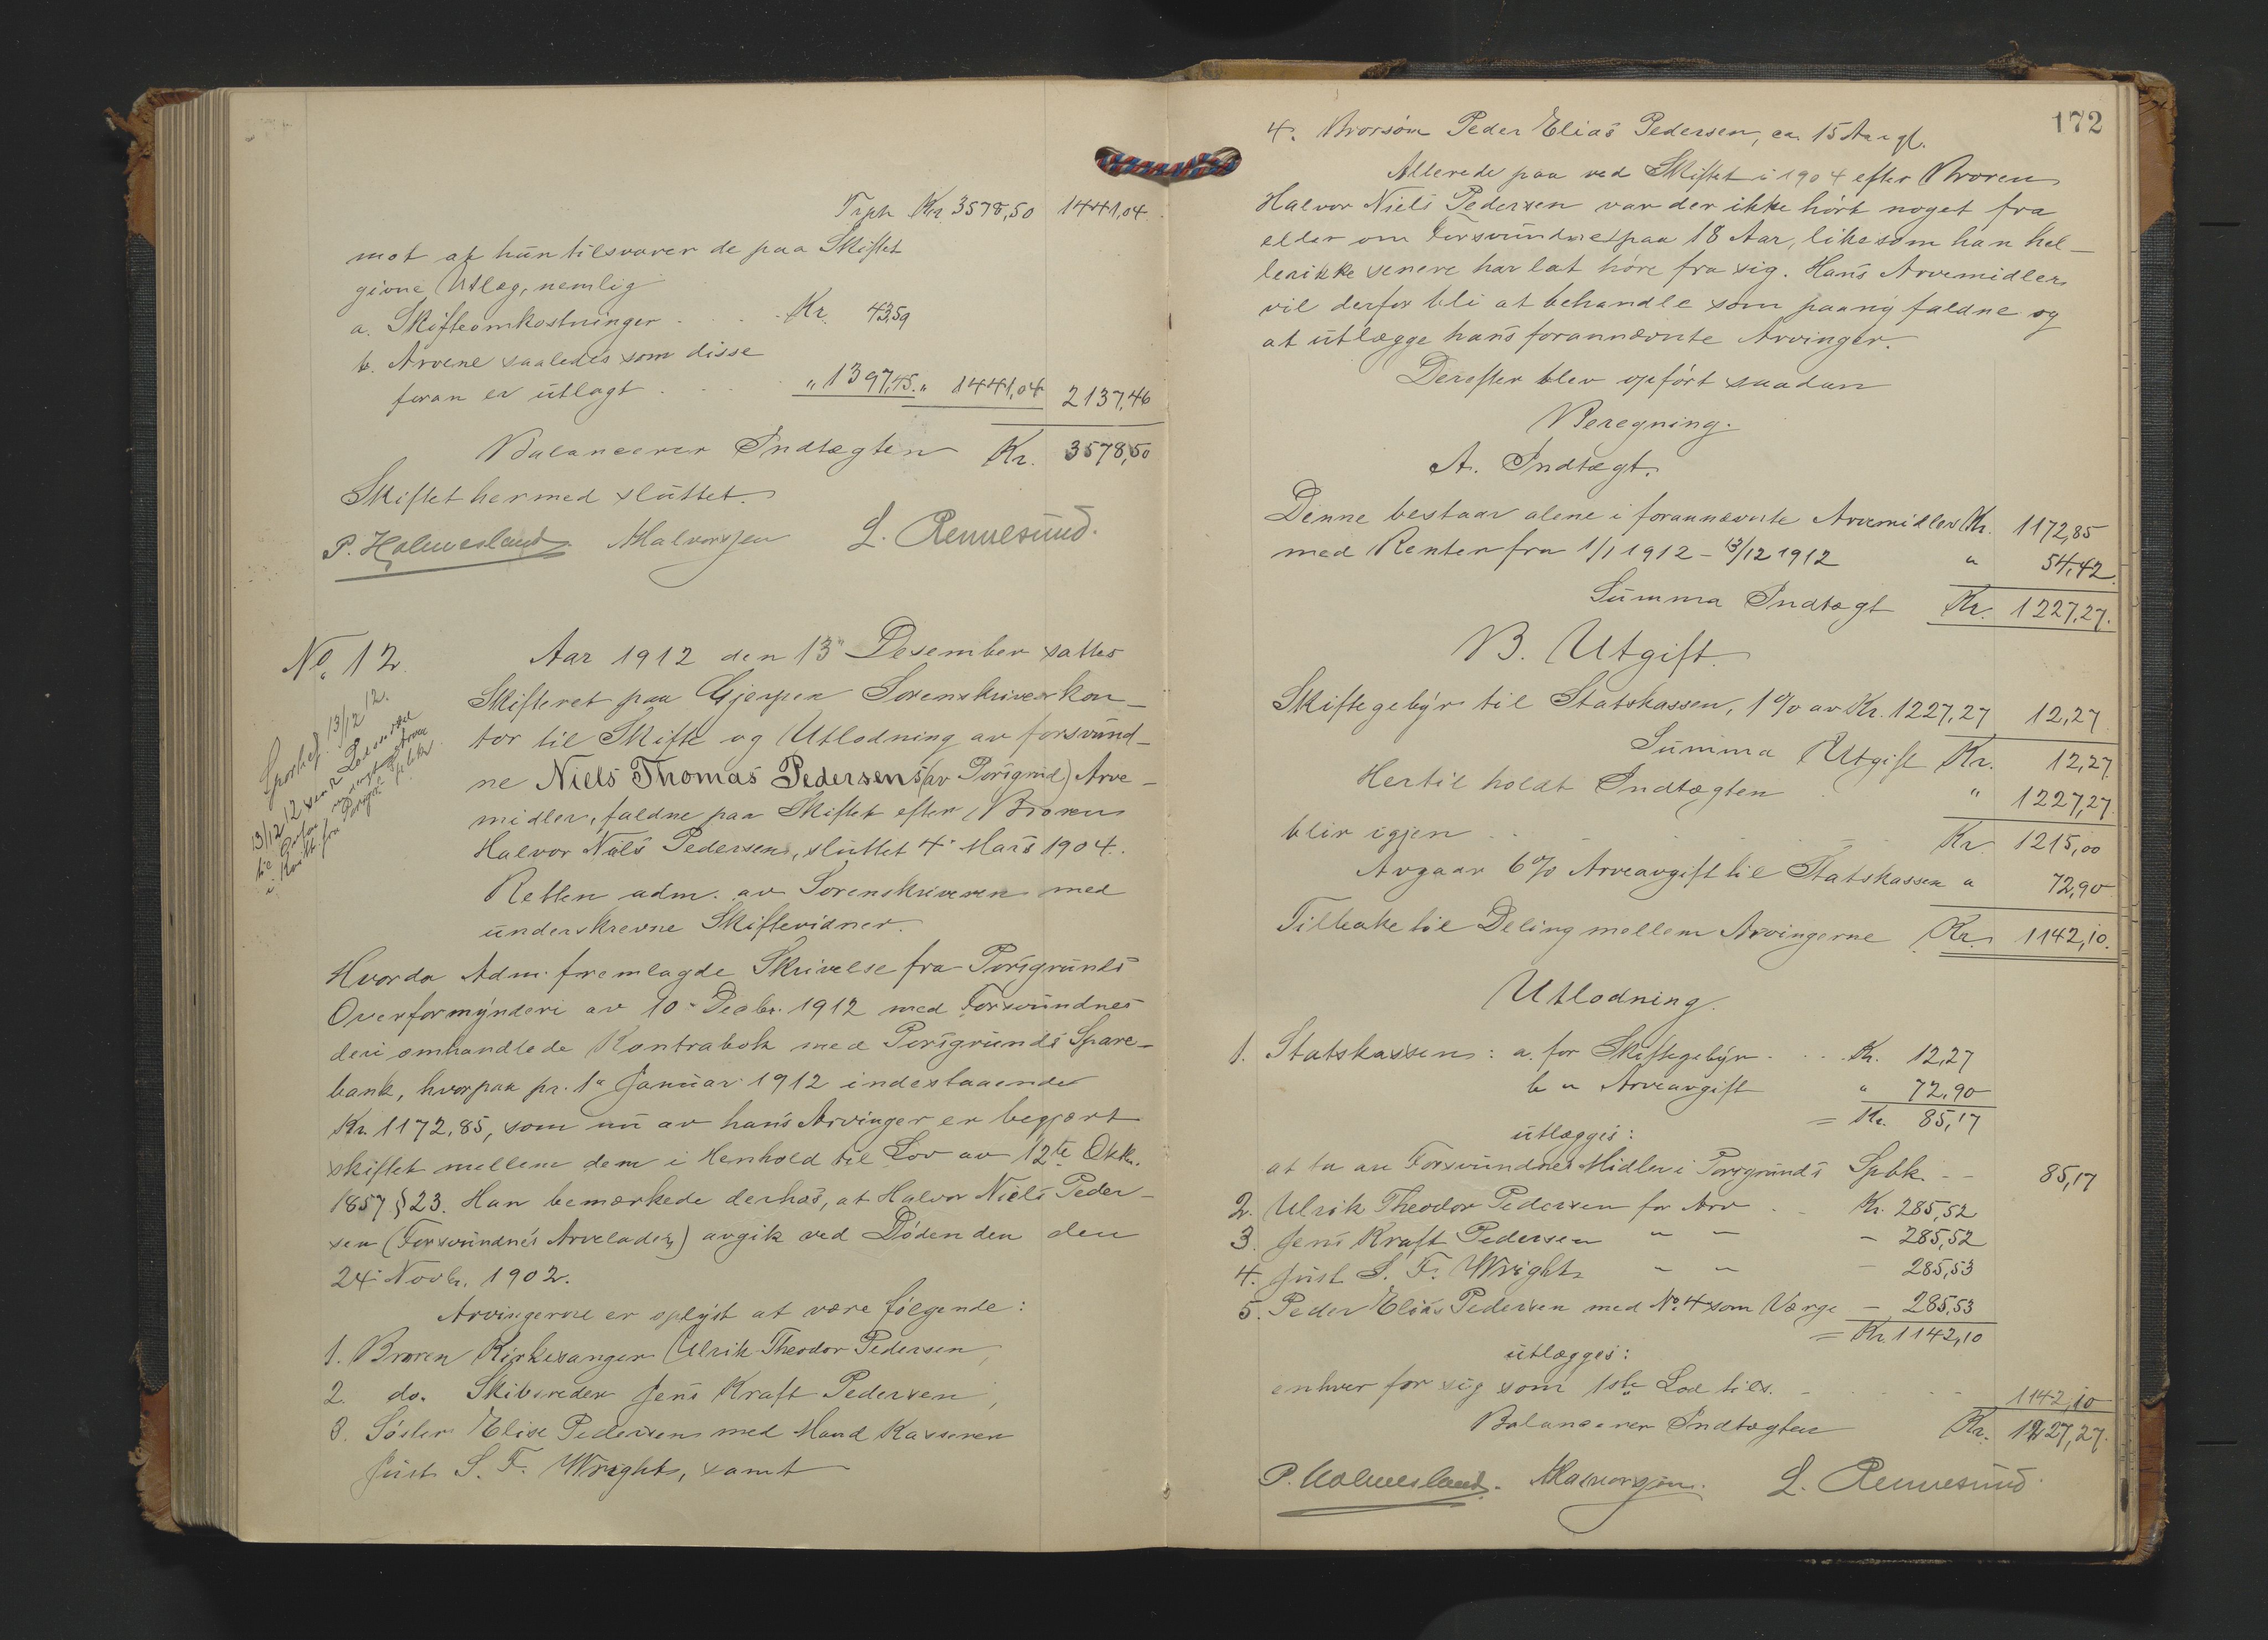 Trph Kr. 3578,50 1441,04
mot at hun tilsvarer de paa Skiftet
givne Utlæg, nemlig
a. Skifteomkostninger . . . Kr. 43,59
b. Arvene saaledes som disse
foran er utlagt . . . " 1397,45. " 1441,04 2137,46
Balancerer Indtægten Kr. 3578,50
Skiftet hermed sluttet.
P. Holmesland. Halvorsen L. Rennesund.
No. 12.
Aar 1912 den 13" Desember sattes
Skifteret paa Gjerpen Sorenskriverkon-
tor til Skifte og Utlodning av forsvund-
ne Niels Thomas Pedersens (av Porsgrund) Arve-
midler, faldne paa Skiftet efter Broren
Halvor Niels Pedersen, sluttet 4" Mars 1904.
Retten adm. av Sorenskriveren med
underskrevne Skiftevidner.
Hvorda Adm. fremlagde Skrivelse fra Porsgrunds
Overformynderi av 10" Decbr. 1912 med Forsvundnes
deri omhandlede Kontrabok med Porsgrunds Spare-
bank, hvorpaa pr. 1" Januar 1912 indestaaende
Kr. 1172,85, som nu av hans Arvinger er begjært
skiftet mellem dem i Henhold til Lov av 12te Oktbr.
1857 § 23. Han bemærkede derhos, at Halvor Niels Peder-
sen (Forsvundnes Arvelader) avgik ved Døden den den
24" Novbr. 1902.
Arvingerne er oplyst at være følgende:
1. Broren Kirkesanger Ulrik Theodor Pedersen,
2. do. Skibsreder Jens Kraft Pedersen,
3. Søster Elise Pedersen med Mand Kasserer
Just S. F. Wright, samt
172
4. Brorsøn Peder Elias Pedersen, ca. 15 Aar gl.
Allerede paa ved Skiftet i 1904 efter Broren
Halvor Niels Pedersen var der ikke hørt noget fra
eller om Forsvundne paa 18 Aar, likesom han hel-
ler ikke senere har lat høre fra sig. Hans Arvemidler
vil derfor bli at behandle som paany faldne og
at utlægge hans forannævnte Arvinger.
Derefter blev opført saadan
Beregning.
A. Indtægt.
Denne bestaar alene i forannævnte Arvemidler Kr. 1172,85
med Renter fra 1/1 1912 - 13/12 1912 " 54,42.
Summa Indtægt Kr. 1227,27.
B. Utgift.
Skiftegebyr til Statskassen, 1% av Kr. 1227,27 12,27
Summa Utgift Kr. 12,27
Hertil holdt Indtægten " 1227,27
blir igjen . . Kr. 1215,00
Avgaar 6% Arveavgift til Statskassen " 72,90
Tilbake til Deling mellem Arvingerne Kr. 1142,10.
Utlodning.
1. Statskassen: a. for Skiftegebyr . . . Kr. 12,27
b " Arveavgift " 72,90
= Kr. 85,17
utlægges:
at ta av Forsvundnes Midler i Porsgrunds Spbk. - - 85,17
2. Ulrik Theodor Pedersen for Arv . . Kr. 285,52
3. Jens Kraft Pedersen " " - 285,52
4. Just S. F. Wright " " - 285,53
5. Peder Elias Pedersen med No. 4 som Værge - 285,53
= Kr. 1142,10
utlægges:
enhver for sig som 1ste Lod tils. - - - - 1142,10
Balancerer Indtægten Kr. 1227,27.
P. Holmesland. Halvorsen. L. Rennesund.